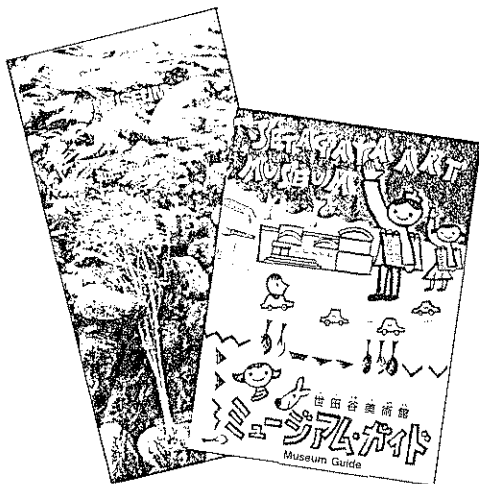 SETAGAYA ART
MUSEUM
世田谷美術館
ミュージアム・ガイド
Museum Guide